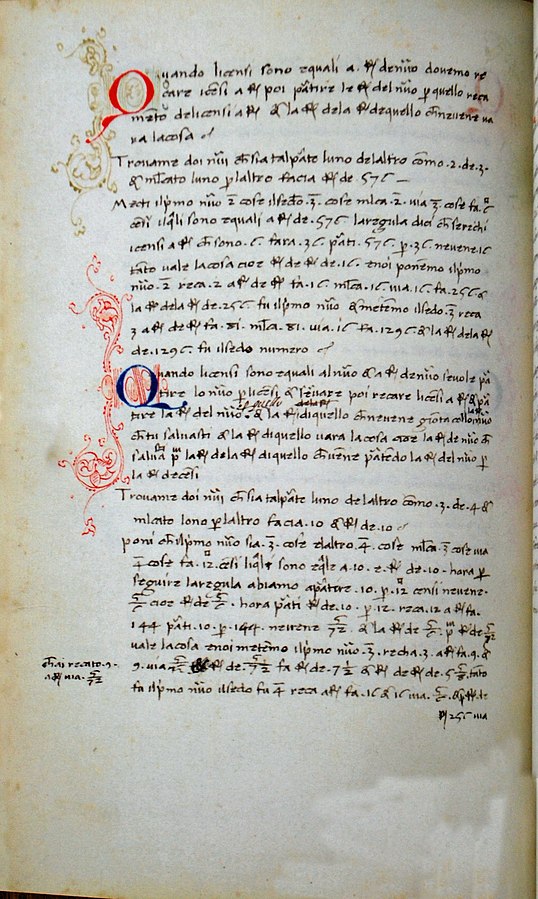 Quando licensi sono equali a. R de nũo dovemo re
care icẽsi a R poi ptire le R del nũo p quello reca
mẽto de licensi a R & la R dela R de quello chneviene va
ra la cosa
Trovame doi nũi chsia tal pte luno delaltro cõmo .2. de .3.
& mlcato luno plaltro facia R de .576
Mecti ilpmo nũo 2̄ cose ilsecdo .3̄. cose mlca .2̄. via .3̄. cose fa .6
cẽsi liqli sono equali a R de .576 la regula dici chse rechi
icensi a R ch sono .6. fara .36 pti. 576. p. 36. nevene .16
tãto vale la cosa cioe R de R de .16. e noi ponẽmo ilpmo
nũo .2̄ reca .2 a R de R fa .16 mlca .16 via .16 fa .256 &
la R dela R de .256 fu ilpmo nũo & metẽmo ilsedo .3̄ reca
3 a R de R fa .81. mlca .81. via .16 fa .1296 & la R dela R
de .1296. fu ilsedo numero
Quando licensi sono equali al nũo & a R de nũo se vole pa
tire lo nũo p licẽsi & servare poi recare licẽsi a R & p
tire la R del nũo & la R di quello chneviene gionta collo nũo
ch tu salvasti & la R di quello vara la cosa cioe la R de nũo ch
salvasti p la R dela R di quello chvene ptẽdo la R del nũo p
la R de cẽsi
Trovame doi nũi chsia tal pte luno delaltro cõmo .3. de .4 &
mlcato lono plaltro facia .10 & R de .10
poni chilpmo nũo sia .3̄. cose elaltro .4̄. cose mlca .3̄ cose via
4̄ cose fa .12. cẽsi liqli sono eqli a .10. e. R de .10. hora p
seguire la regula abiamo aptire .10. p. 12 censi nevene.
5/6 cioe R de 5/6. hora pti R de .10. p. 12. reca .12 a R fa.
144 pti .10. p. 144. nevene 5/72. & la R de 5/6 p R de 5/72
vale la cosa e noi metẽmo ilpmo nũo .3̄. recha .3. a R fa .9. &
9. via 5/6 R de .7 1/2 fa R de .7 1/2 & R de R de .5 5/8 tãto
fu ilpmo nũo ilsedo fu 4̄ reca a R fa .16 & 16 via. 5/6. & p R de
R 256 via
ch ai recato .9.
a R via. 5/72